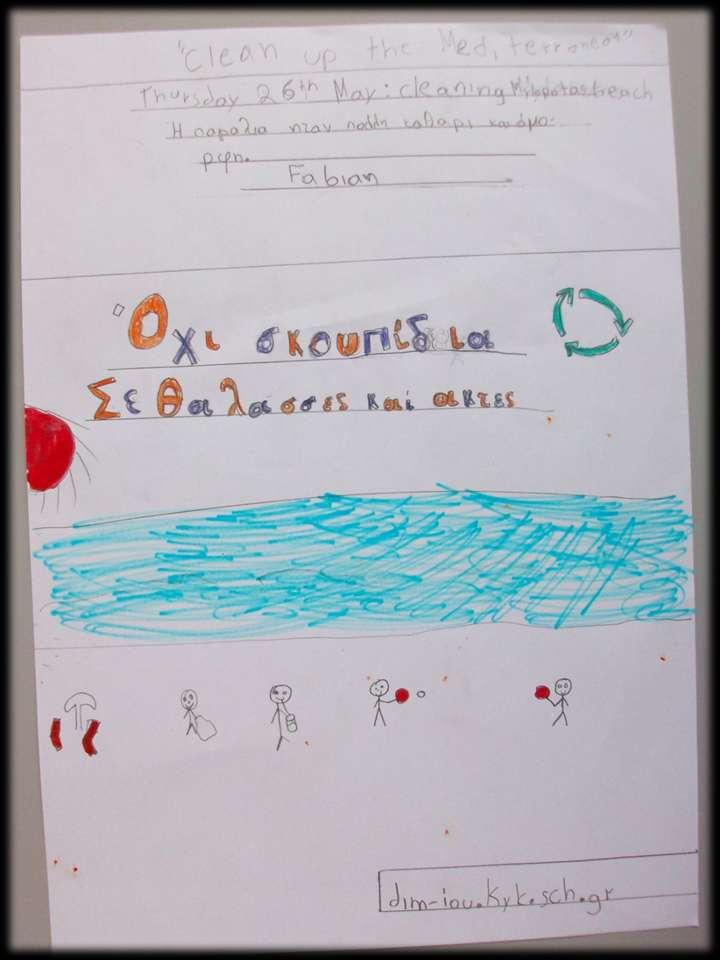 "Clean up the Med,terranean"
Thursday 26th May: cleaning Mylopotas beach
Η παραλια ηταν πολλη καθαρι και όμο-
ρφη.
Fabian
Όχι σκουπίδια
Σε θαλασσες και ακτες
dim-iou.kyk.sch.gr